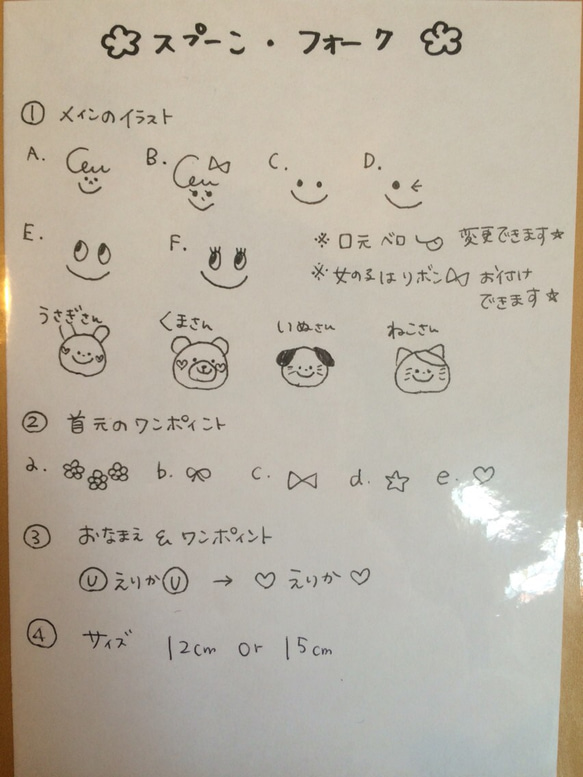 スプーン・フォーク
① メインのイラスト
A. B. C. D.
E. F.
※ 口元 ベロ 変更できます☆
※ 女の子はリボン お付け
できます☆
うさぎさん くまさん いぬさん ねこさん
② 首元のワンポイント
a. b. c. d. e.
③ おなまえ & ワンポイント
えりか → ♡ えりか ♡
④ サイズ 12cm or 15cm